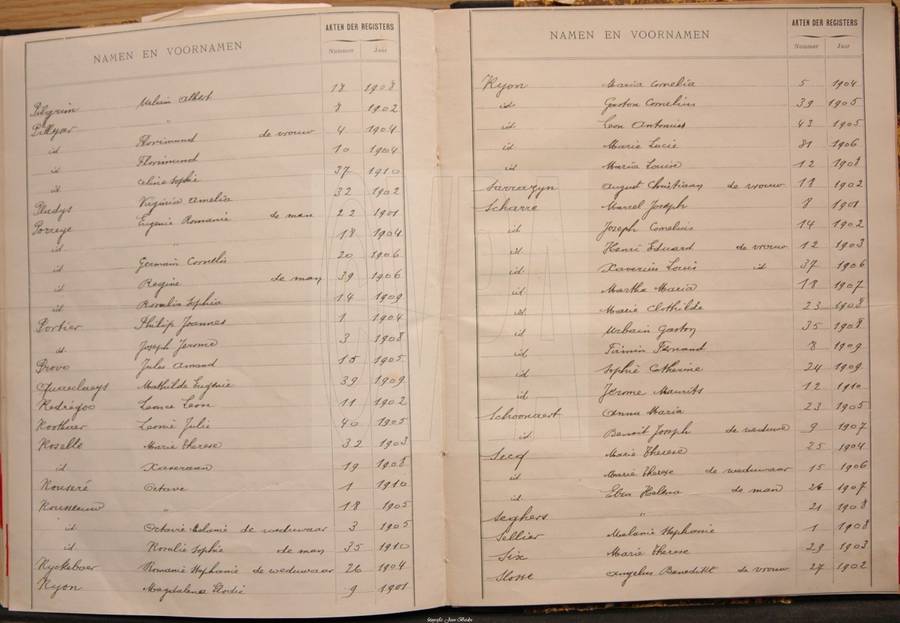 NAMEN EN VOORNAMEN AKTEN DER REGISTERS
Nummer Jaar
Pelgrim Urbain Albert 18 1908
Pillyar " 8 1902
id Florimond de vrouw 4 1904
id Florimond 10 1904
id Aline Sophie 37 1910
Pladys Virginia Amelia 32 1902
Porreye Eugenie Romanie de man 22 1901
id " 18 1904
id Germain Cornelis 20 1906
id Regine de man 39 1906
id Rosalia Sophia 14 1909
Portier Philip Joannes 1 1904
id Joseph Jerome 3 1908
Provo Jules Amand 15 1905
Quaeclaeys Mathilde Eugenie 39 1909
Leonce Leon 11 1902
Roothaer Leonie Julie 40 1905
Roselle Marie Therese 32 1903
id 19 1908
Rouseré Octave 1 1910
Rousseeuw " 18 1905
id Octavie Melanie de weduwaar 3 1905
id Rosalie Sophie de man 35 1910
Ryckeboer Romanie Stephanie de weduwaar 26 1904
Ryon Magdalena Elodie 9 1901
NAMEN EN VOORNAMEN AKTEN DER REGISTERS
Nummer Jaar
Ryon Maria Cornelia 5 1904
id Gaston Cornelius 39 1905
id Leon Antonius 43 1905
id Marie Lucie 81 1906
id Maria Louise 12 1908
Sarrazyn August Christiaan de vrouw 11 1902
Scharre Marcel Joseph 8 1901
id Joseph Cornelius 14 1902
id Henri Eduard de vrouw 12 1903
id Xaverius Louis id 37 1906
id Martha Maria 18 1907
id Marie Clothilde 23 1908
id Urbain Gaston 35 1908
id Firmin Fernand 8 1909
id Sophie Catherine 24 1909
id Jerome Maurits 12 1910
Schoonaert Anna Maria 23 1905
id Benoit Joseph de weduwe 9 1907
Secq Marie Therese 25 1904
id Marie Therese de weduwaar 15 1906
id Elza Helena de man 26 1907
Seghers " 21 1908
Sellier Melanie Stephanie 1 1908
Six Marie Therese 29 1903
Slosse Angelus Benedikt de vrouw 27 1902